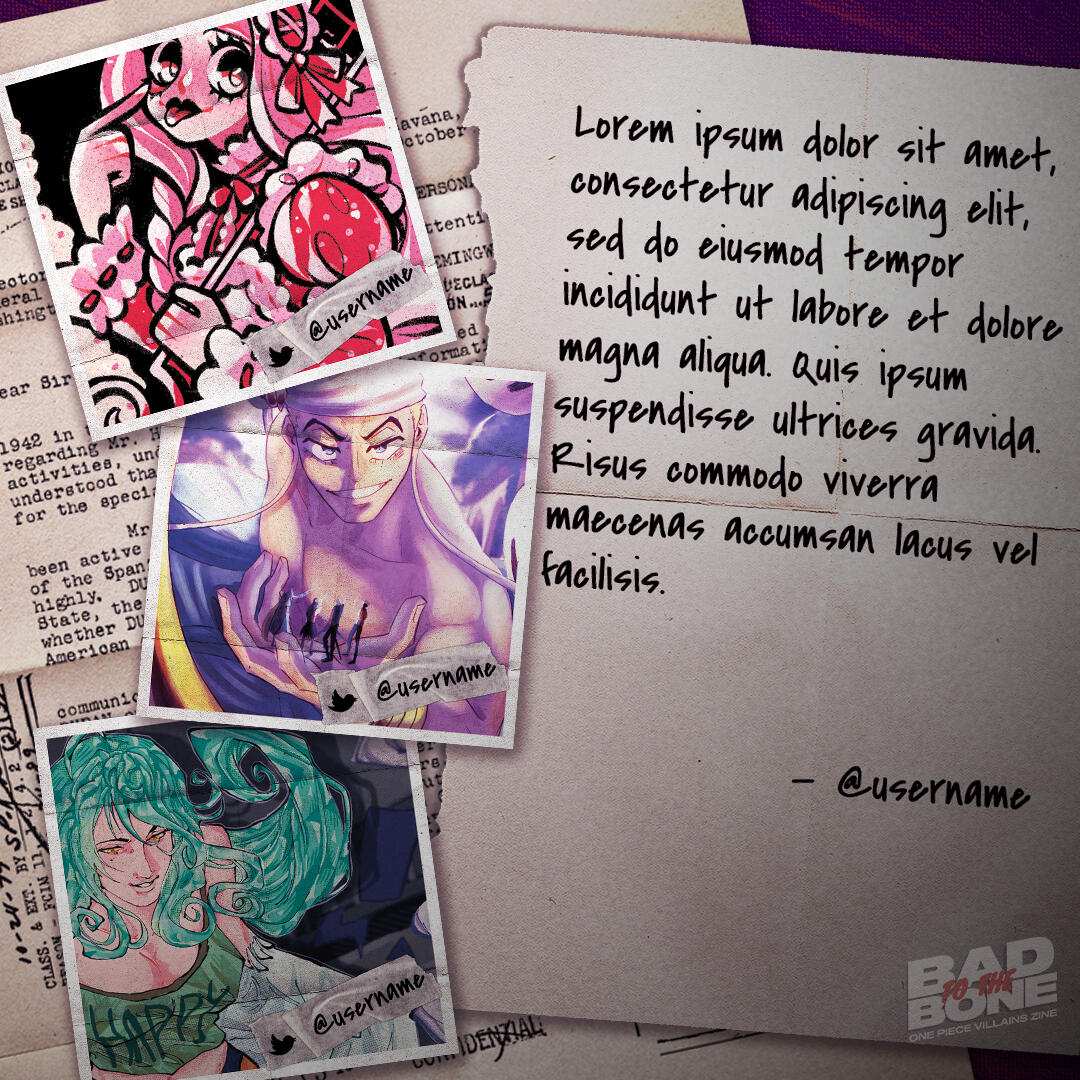 avana,
ctober
ttenti
ear Sir
1942 in
regarding Mr. H
activities, und
understood tha
for the speci
Mr
been active
of the Span
highly. DU
State, the
whether DU
American
communic
10-24-99
CLASS. & EXT. BY
REASON - FCIN 11
@username
@username
HAPPY
@username
CONFIDENTIAL
Lorem ipsum dolor sit amet,
consectetur adipiscing elit,
sed do eiusmod tempor
incididunt ut labore et dolore
magna aliqua. Quis ipsum
suspendisse ultrices gravida.
Risus commodo viverra
maecenas accumsan lacus vel
facilisis.
– @username
BAD
TO THE
BONE
ONE PIECE VILLAINS ZINE